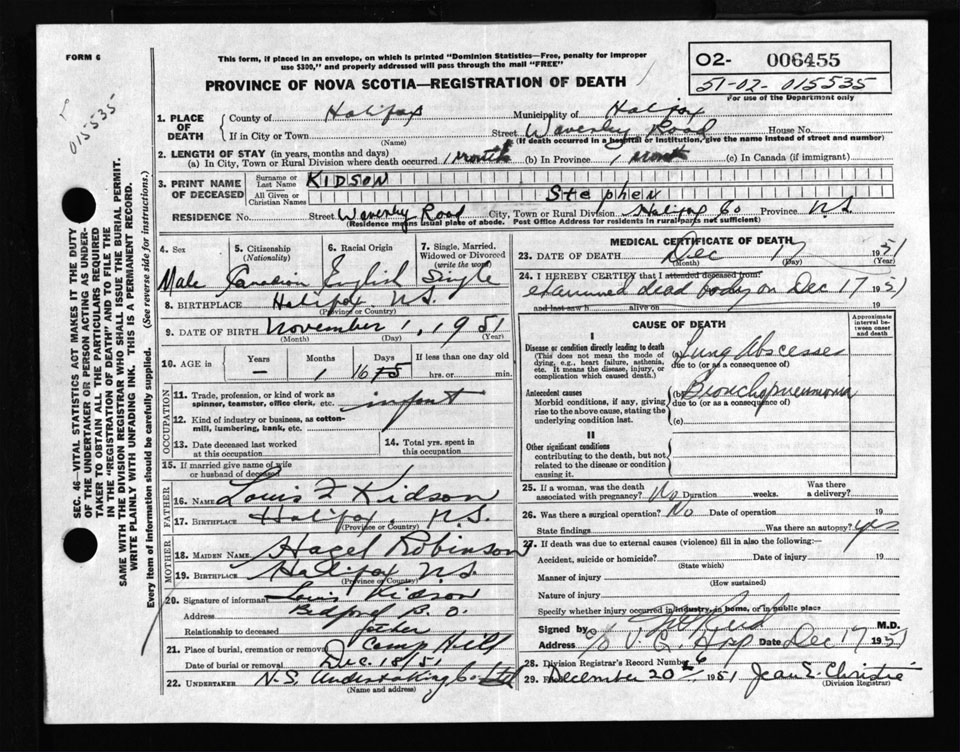 FORM 6
This form, if placed in an envelope, on which is printed "Dominion Statistics—Free, penalty for improper
use $300," and properly addressed will pass through the mail "FREE"
PROVINCE OF NOVA SCOTIA—REGISTRATION OF DEATH
O2- 006455
51-02-015535
For use of the Department only
015535
SEC. 46—VITAL STATISTICS ACT MAKES IT THE DUTY
OF THE UNDERTAKER OR PERSON ACTING AS UNDER-
TAKER TO OBTAIN ALL THE PARTICULARS REQUIRED
IN THE "REGISTRATION OF DEATH" AND TO FILE THE
SAME WITH THE DIVISION REGISTRAR WHO SHALL ISSUE THE BURIAL PERMIT.
WRITE PLAINLY WITH UNFADING INK. THIS IS A PERMANENT RECORD.
Every item of information should be carefully supplied. (See reverse side for instructions.)
1. PLACE OF DEATH
County of Halifax Municipality of Halifax
If in City or Town Street Waverly Road House No.
(Name) (If death occurred in a hospital or institution, give the name instead of street and number)
2. LENGTH OF STAY (in years, months and days)
(a) In City, Town or Rural Division where death occurred 1 month (b) In Province 1 month (c) In Canada (if immigrant)
3. PRINT NAME OF DECEASED
Surname or Last Name KIDSON
All Given or Christian Names Stephen
RESIDENCE No. Street Waverly Road City, Town or Rural Division Halifax Co Province N.S.
(Residence means usual place of abode. Post Office Address for residents in rural parts not sufficient)
4. Sex Male
5. Citizenship (Nationality) Canadian
6. Racial Origin English
7. Single, Married, Widowed or Divorced (write the word) Single
8. BIRTHPLACE Halifax N.S.
(Province or Country)
9. DATE OF BIRTH November 1, 1951
(Month) (Day) (Year)
10. AGE in Years Months Days If less than one day old
— 1 16 hrs. or min.
OCCUPATION
11. Trade, profession, or kind of work as
spinner, teamster, office clerk, etc. infant
12. Kind of industry or business, as cotton-
mill, lumbering, bank, etc.
13. Date deceased last worked
at this occupation
14. Total yrs. spent in
this occupation
15. If married give name of wife
or husband of deceased
FATHER
16. NAME Louis F Kidson
17. BIRTHPLACE Halifax, N.S.
(Province or Country)
MOTHER
18. MAIDEN NAME Hazel Robinson
19. BIRTHPLACE Halifax N.S.
(Province or Country)
20. Signature of informant Louis Kidson
Address Bedford B. O.
Relationship to deceased father
21. Place of burial, cremation or removal Camp Hill
Date of burial or removal Dec. 18/51
22. UNDERTAKER N.S. Undertaking Co Ltd
(Name and address)
MEDICAL CERTIFICATE OF DEATH
23. DATE OF DEATH Dec 17 1951
(Month) (Day) (Year)
24. I HEREBY CERTIFY that I attended deceased from
examined dead body on Dec 17 1951
and last saw h alive on 19
CAUSE OF DEATH
Approximate interval between onset and death
I
Disease or condition directly leading to death
(This does not mean the mode of
dying, e.g., heart failure, asthenia,
etc. It means the disease, injury, or
complication which caused death.)
(a) Lung Abscesses
due to (or as a consequence of)
Antecedent causes
Morbid conditions, if any, giving
rise to the above cause, stating the
underlying condition last.
(b) Bronchopneumonia
due to (or as a consequence of)
(c)
II
Other significant conditions
contributing to the death, but not
related to the disease or condition
causing it.
25. If a woman, was the death
associated with pregnancy? No Duration weeks. Was there a delivery?
26. Was there a surgical operation? No Date of operation 19
State findings Was there an autopsy? yes
27. If death was due to external causes (violence) fill in also the following:—
Accident, suicide or homicide? Date 19
(State which)
Manner of injury
(How sustained)
Nature of injury
Specify whether injury occurred in industry, in home, or in public place
Signed by M.D.
Address c/o V. G. Hosp Date Dec 17 1951
28. Division Registrar's Record Number 6
29. December 20 1951 Jean E. Christie
(Division Registrar)